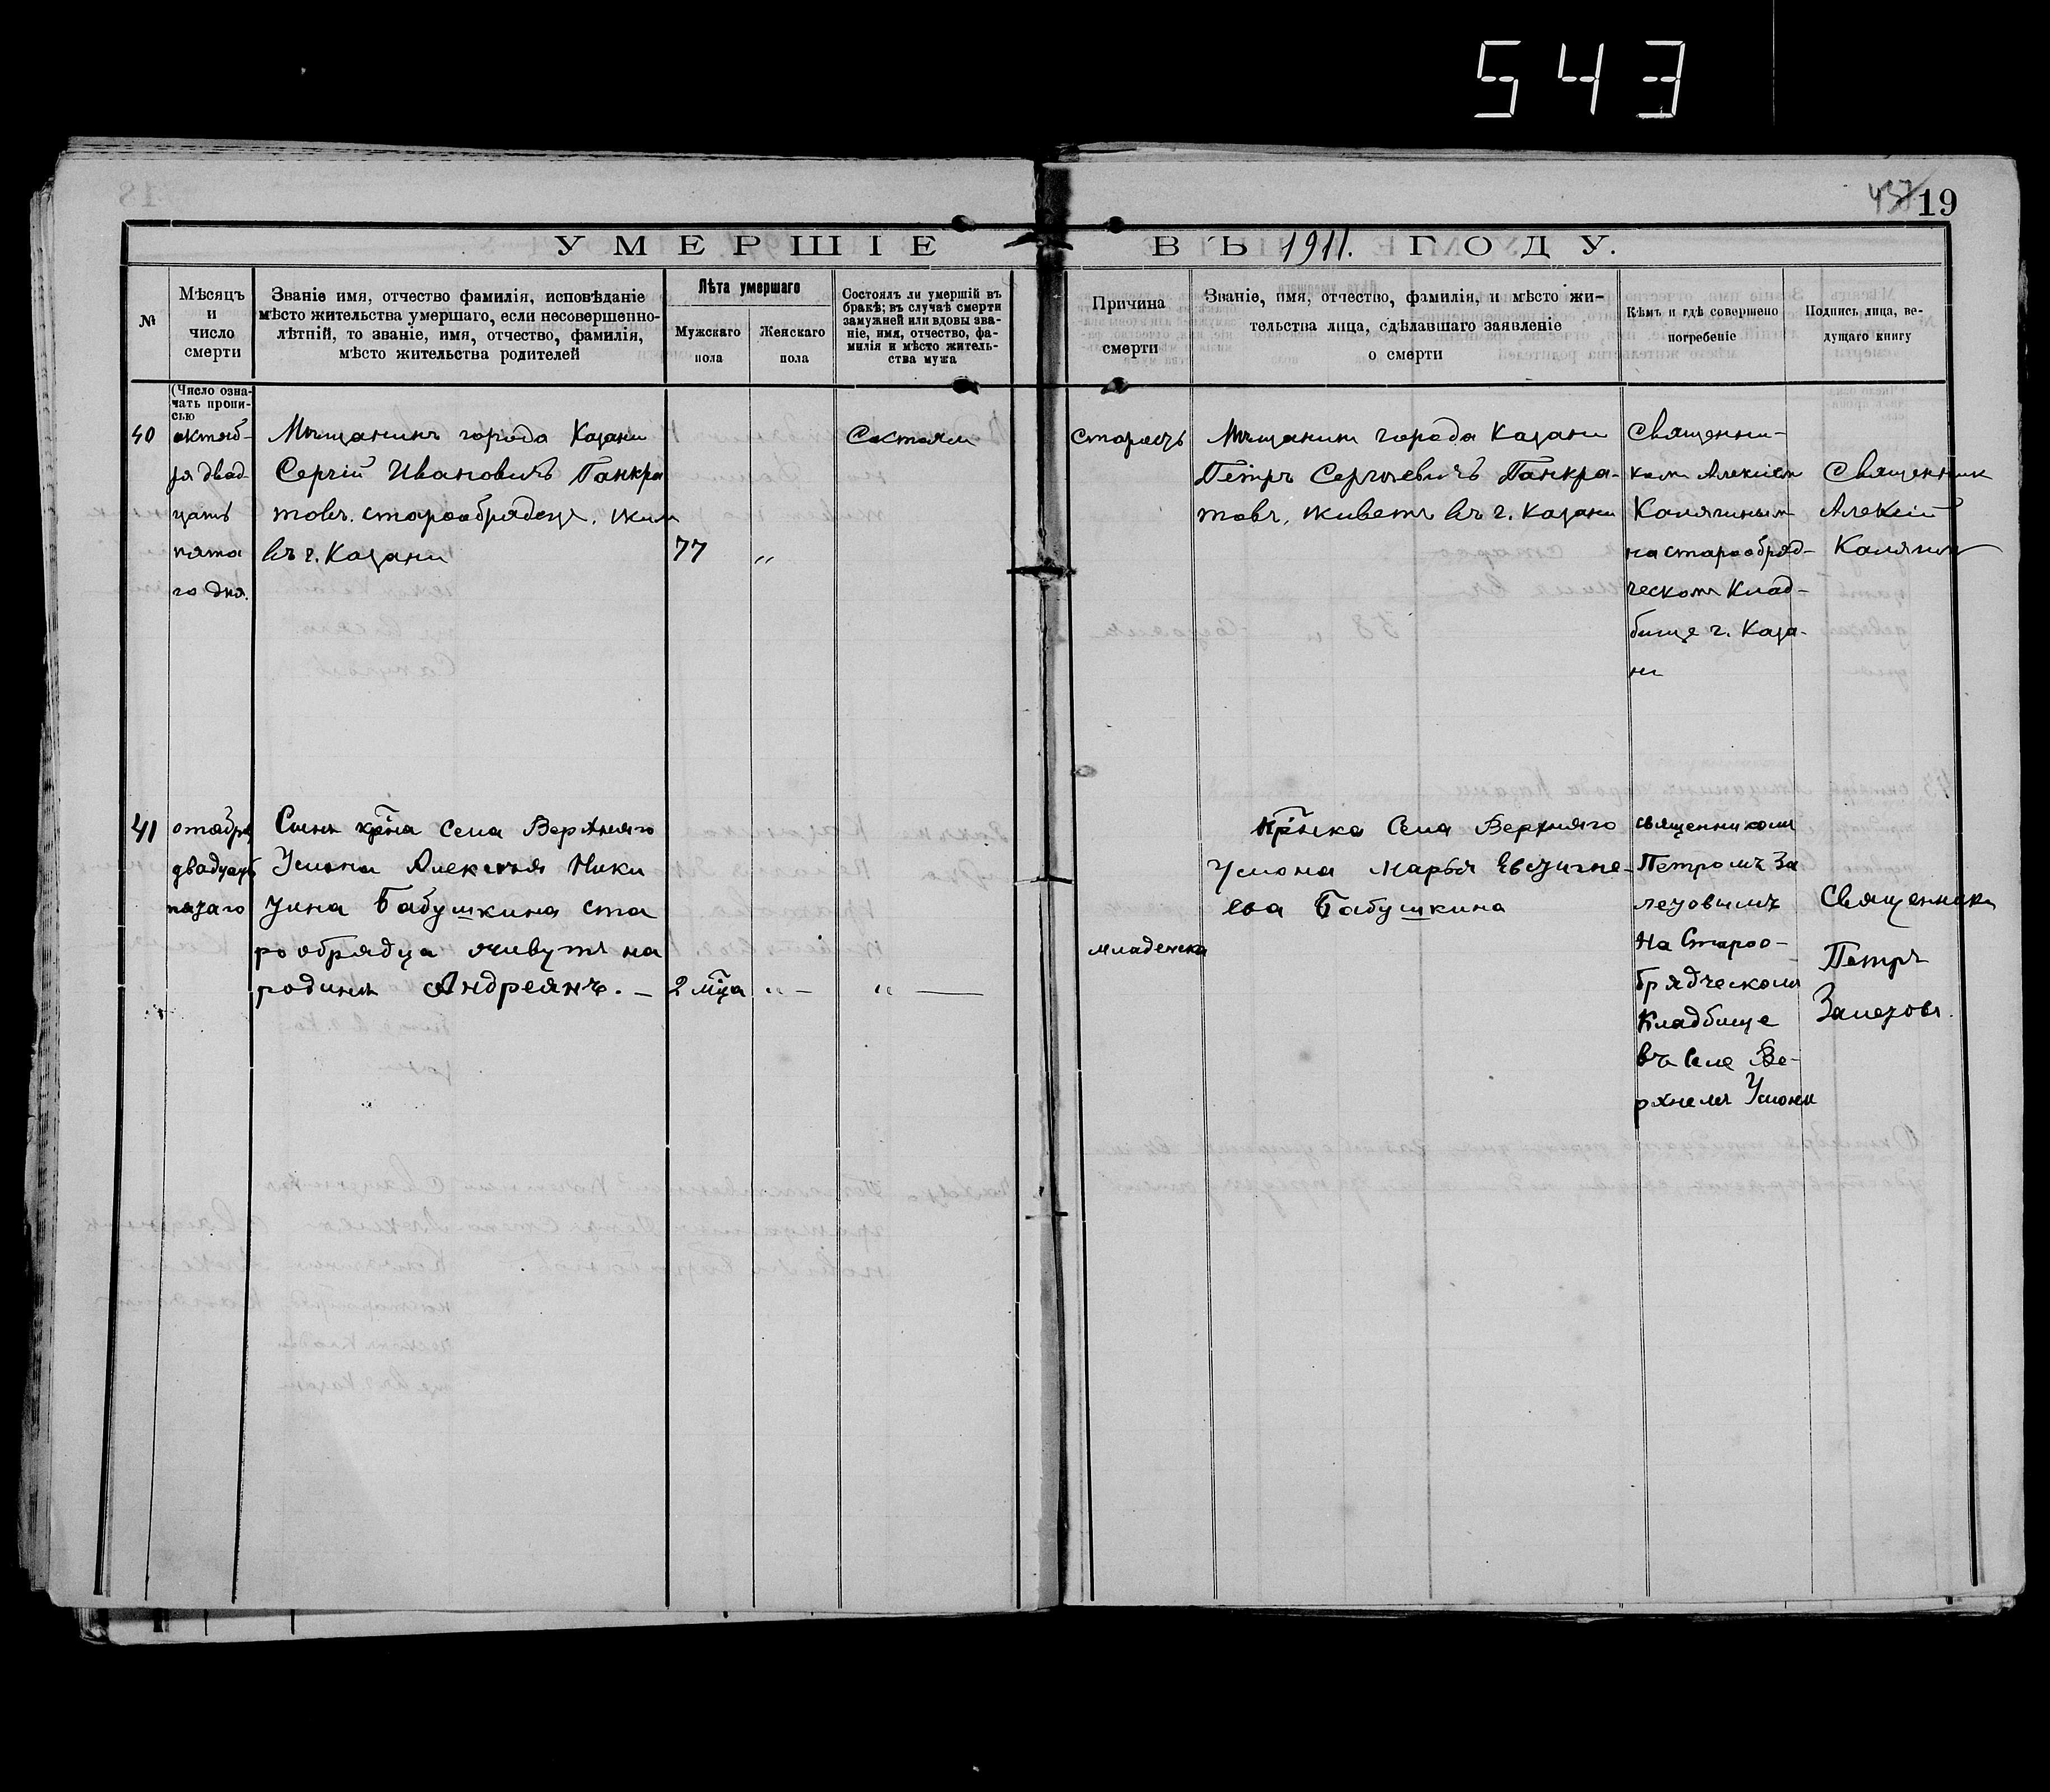 543
19
УМЕРШІЕ ВЪ 1911. ГОДУ.
№
Мѣсяцъ
и
число
смерти
Званіе имя, отчество фамилія, исповѣданіе
мѣсто жительства умершаго, если несовершенно-
лѣтній, то званіе, имя, отчество, фамилія,
мѣсто жительства родителей
Лѣта умершаго
Мужскаго
пола
Женскаго
пола
Состоялъ ли умершій въ
бракѣ; въ случаѣ смерти
замужней или вдовы зва-
ніе, имя, отчество, фа-
милія и мѣсто житель-
ства мужа
Причина
смерти
Званіе, имя, отчество, фамилія, и мѣсто жи-
тельства лица, сдѣлавшаго заявленіе
о смерти
Кѣмъ и гдѣ совершено
погребеніе
Подпись лица, ве-
дущаго книгу
(Число озна-
чать пропи-
сью
40
октяб-
ря двад-
цать
пята
го дня.
Мѣщанинъ города Казани
Сергій Ивановичъ Панкра
товъ. старообрядецъ. жил
въ г. Казани
77
„
Состоял
старость
Мѣщанин города Казани
Петръ Сергѣевичъ Панкра-
товъ, живетъ въ г. Казани
Священни-
ком Алексіем
Калягиным
на старообряд-
ческом клад-
бище г. Каза-
ни
Священник
Алексій
Калягин
41
отября
двадцать
пятаго
Сынъ кр̃на села Верхняго
Услона Алексѣя Ники
тина Бабушкина ста
рообрядца живутъ на
родинѣ Андреянъ. –
2 мц̃а
„ –
„ –
младенска
Кр̃нка села Верхняго
Услона Марья Евсигне-
ева Бабушкина
священником
Петромъ За
лезовымъ
На Староо-
брядческом
Кладбище
въ селе Ве-
рхнемъ Услоне
Священникъ
Петръ
Залезовъ.